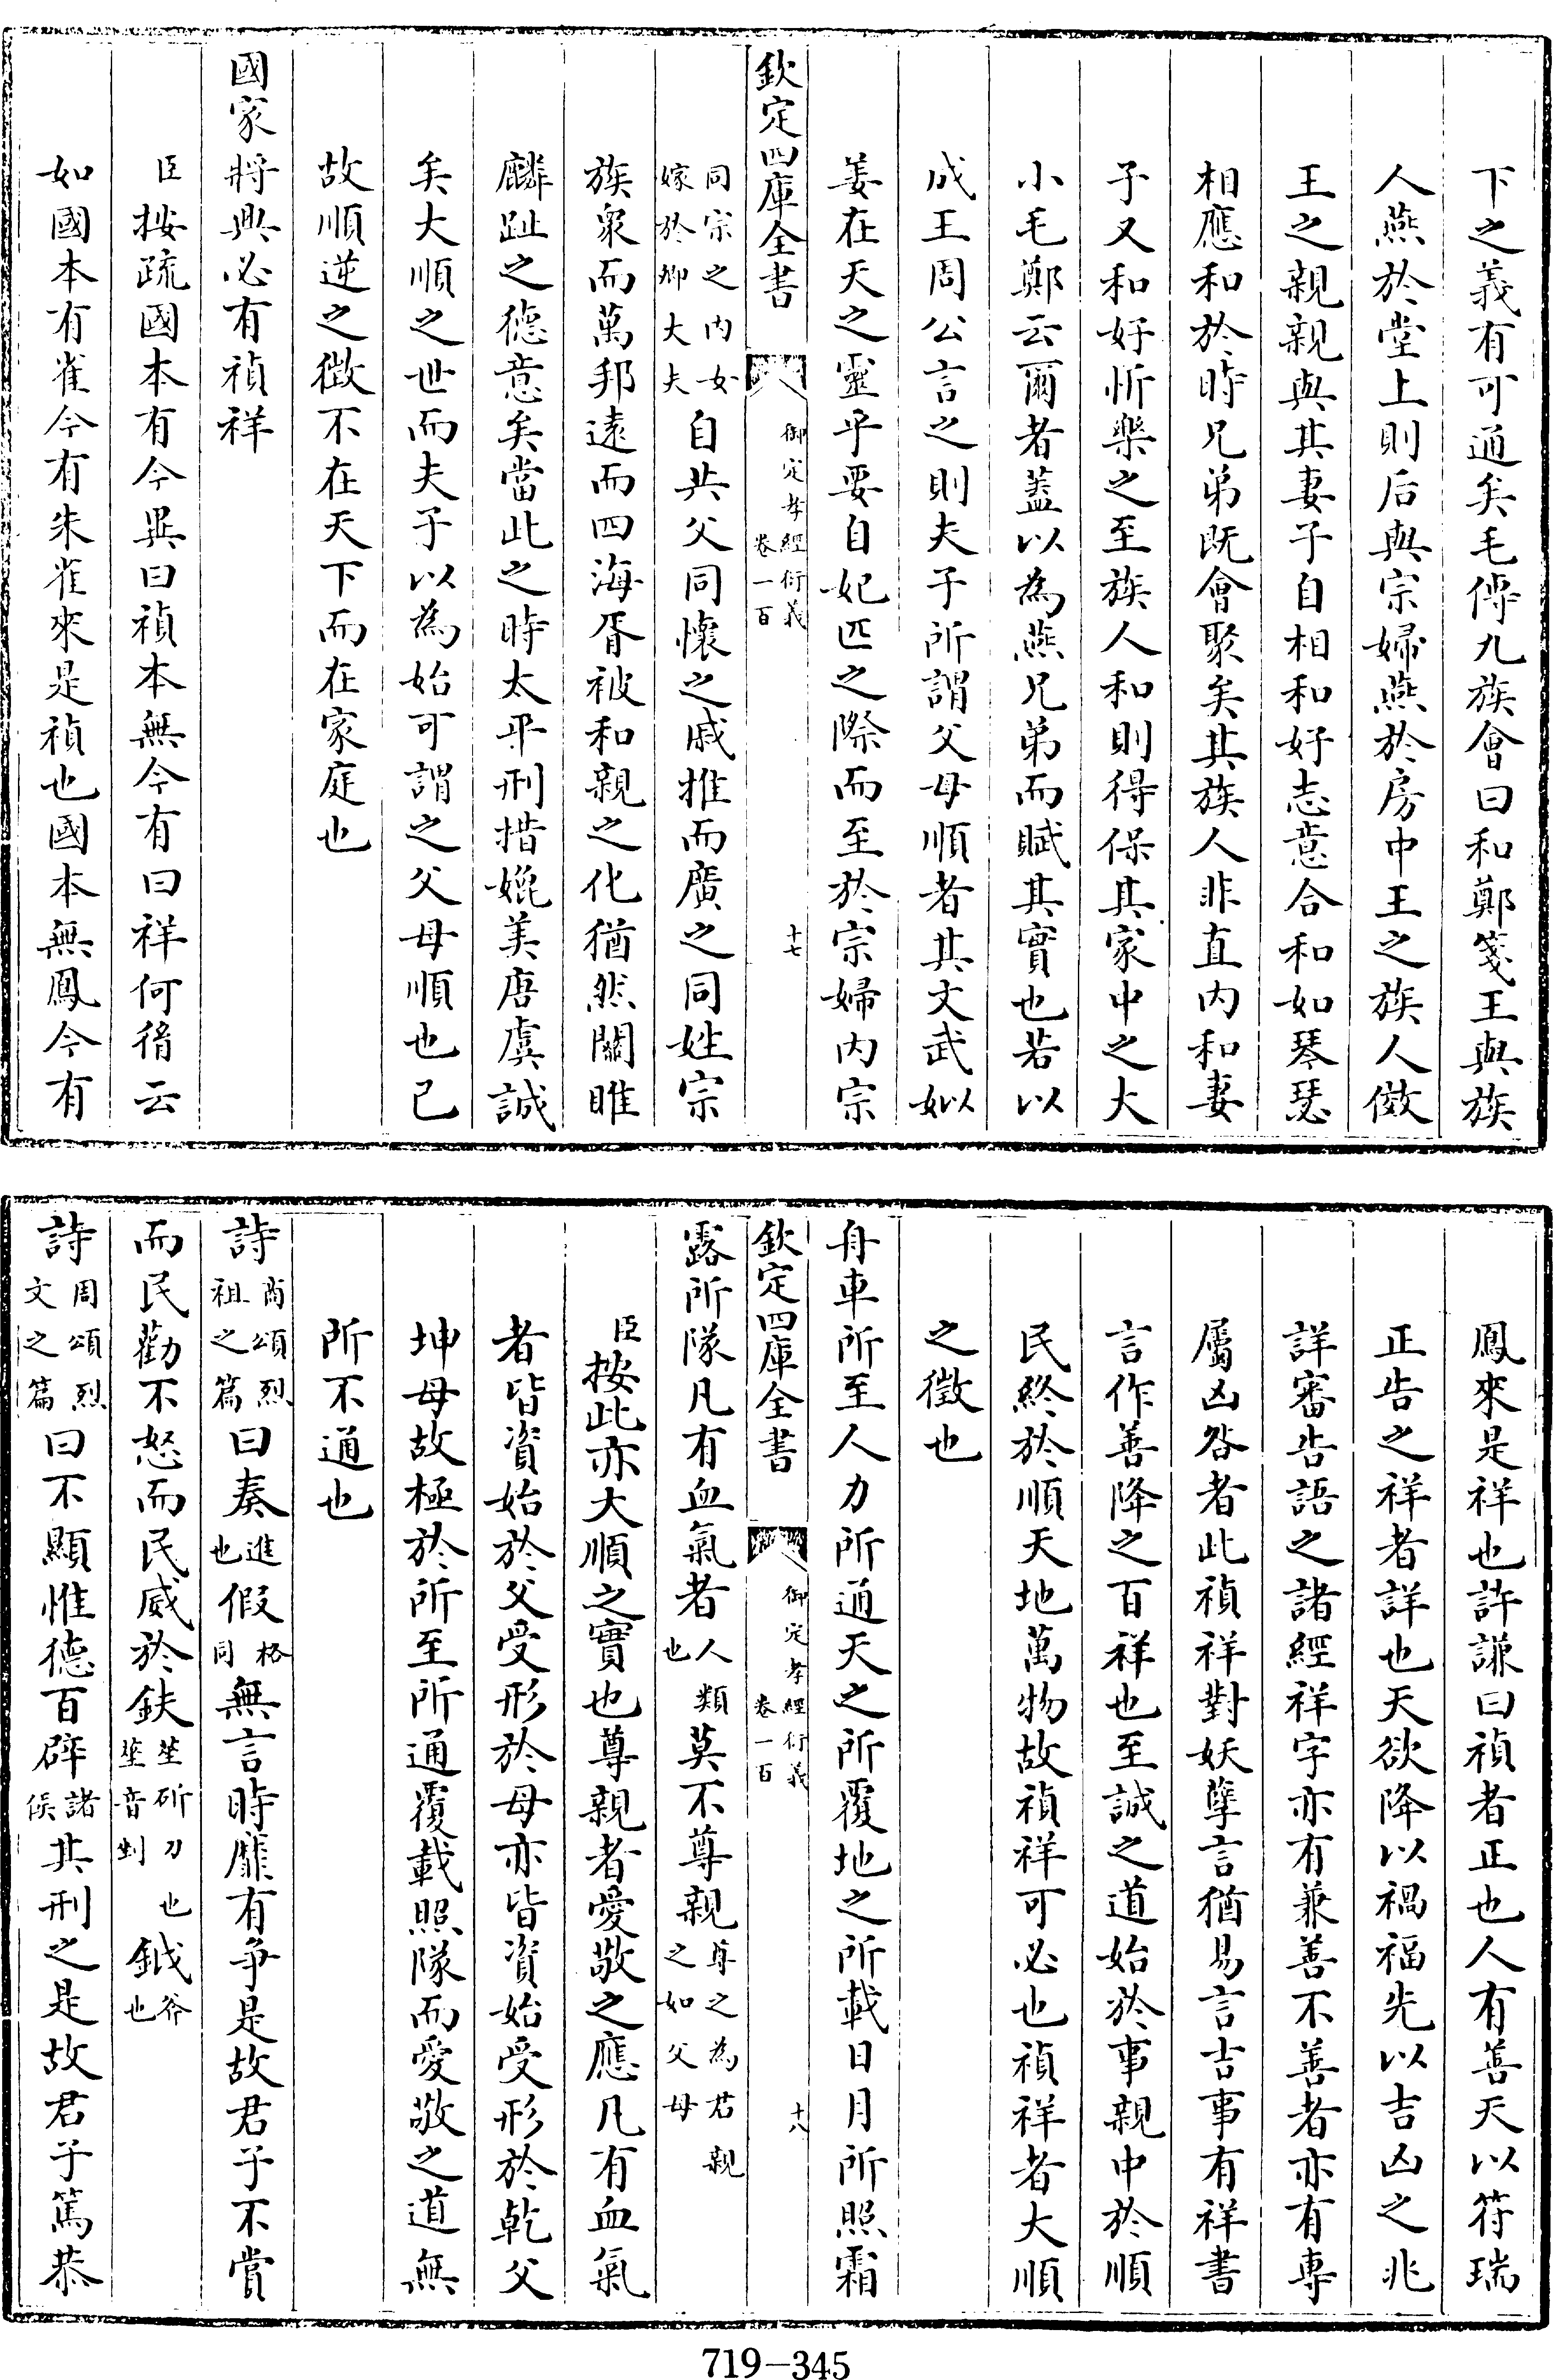 下之義有可通矣毛傳九族會曰和鄭箋王與族
人燕於堂上則后與宗婦燕於房中王之族人傚
王之親親與其妻子自相和好志意合和如琴瑟
相應和於時兄弟既會聚矣其族人非直内和妻
子又和好忻樂之至族人和則得保其家中之大
小毛鄭云爾者蓋以為燕兄弟而賦其實也若以
成王周公言之則夫子所謂父母順者其文武姒
姜在天之靈乎要自妃匹之際而至於宗婦内宗
欽定四庫全書
御定孝經衍義
卷一百
十七
同宗之内女
嫁於卿大夫
自共父同懷之戚推而廣之同姓宗
族衆而萬邦遠而四海胥被和親之化猶然關雎
麟趾之德意矣當此之時太平刑措媲美唐虞誠
矣大順之世而夫子以為始可謂之父母順也已
故順逆之徴不在天下而在家庭也
國家將興必有禎祥
臣按疏國本有今異曰禎本無今有曰祥何徟云
如國本有雀今有朱雀來是禎也國本無鳳今有
鳳來是祥也許謙曰禎者正也人有善天以符瑞
正告之祥者詳也天欲降以禍福先以吉凶之兆
詳審告語之諸經祥字亦有兼善不善者亦有專
屬凶咎者此禎祥對妖孽言猶易言吉事有祥書
言作善降之百祥也至誠之道始於事親中於順
民終於順天地萬物故禎祥可必也禎祥者大順
之徴也
舟車所至人力所通天之所覆地之所載日月所照霜
欽定四庫全書
御定孝經衍義
卷一百
十八
露所隊凡有血氣者
人類
也
莫不尊親
尊之為君親
之如父母
臣按此亦大順之實也尊親者愛敬之應凡有血氣
者皆資始於父受形於母亦皆資始受形於乾父
坤母故極於所至所通覆載照隊而愛敬之道無
所不通也
詩
商頌烈
祖之篇
曰奏
進
也
假
格
同
無言時靡有爭是故君子不賞
而民勸不怒而民威於鈇
莝斫刀也
莝音剉
鉞
斧
也
詩
周頌烈
文之篇
曰不顯惟德百辟
諸
侯
其刑之是故君子篤恭
719-345